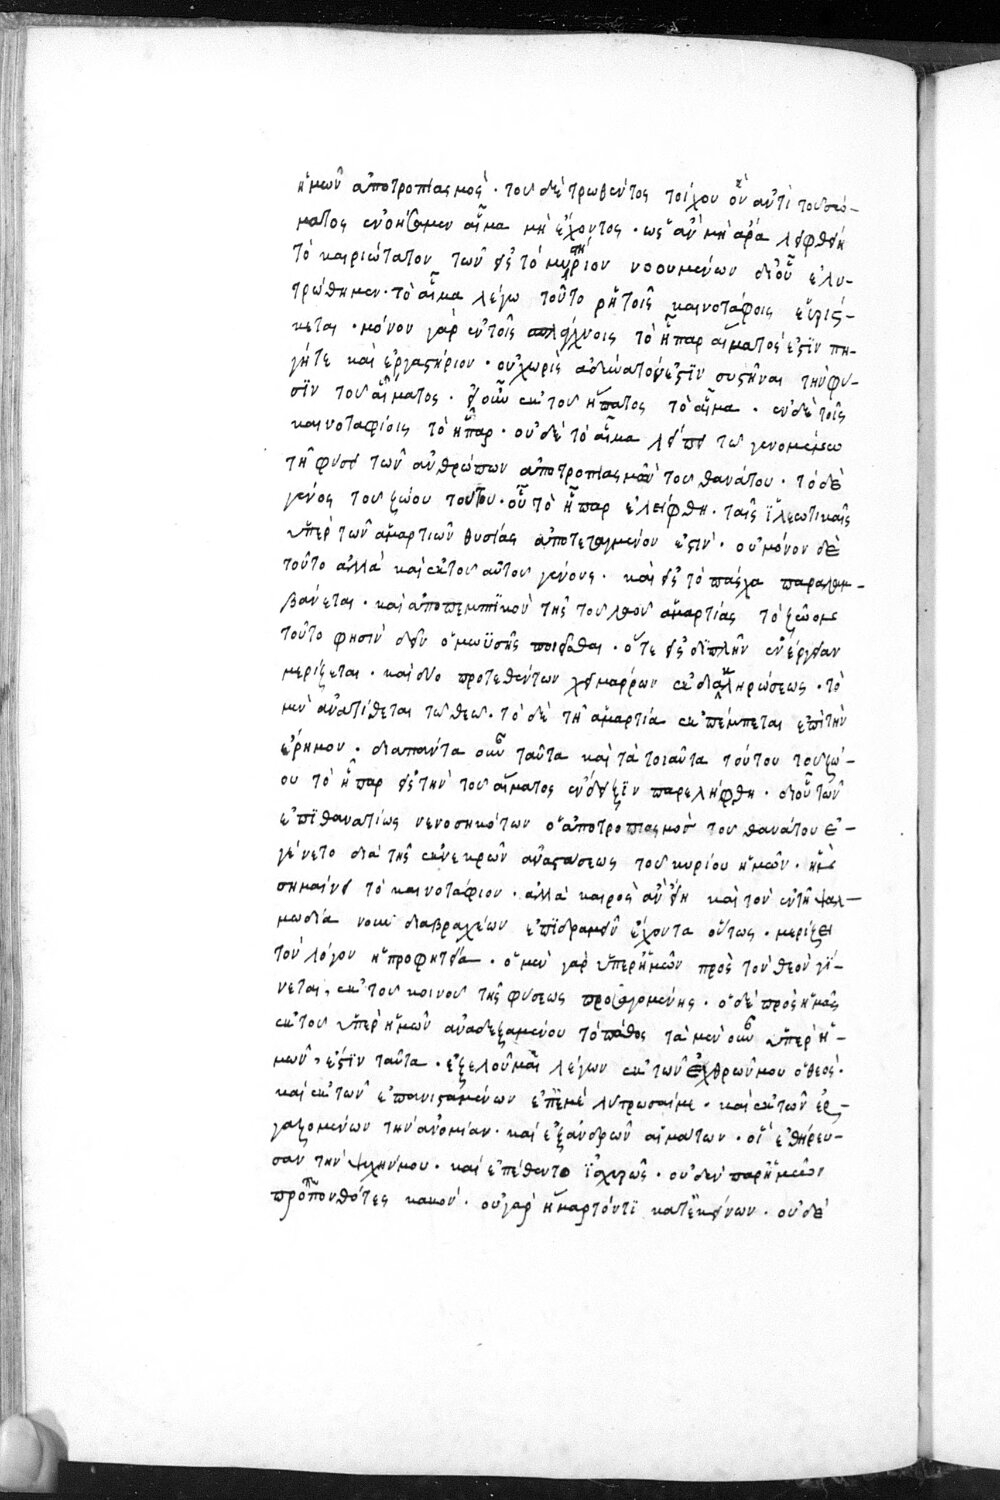 ἡμῶν ἀποτροπιασμός· τοῦ δὲ τρωθέντος τοίχου ὃν ἀντὶ τοῦ σώ-
ματος ἐνοήσαμεν αἷμα μὴ ἔχοντος· ὡς ἂν μὴ ἄρα λειφθείη
τὸ καιριώτατον τῶν εἰς τὸ μυστήριον νοουμένων δι' οὗ ἐλυ-
τρώθημεν· τὸ αἷμα λέγω τοῦτο ἐν τοῖς καινοτάφοις εὑρίσ-
κεται· μόνον γὰρ ἐν τοῖς σπλάγχνοις τὸ ἧπαρ αἵματός ἐστιν πη-
γή τε καὶ ἐργαστήριον· οὗ χωρὶς ἀδύνατόν ἐστιν συστῆναι τὴν φύ-
σιν τοῦ αἵματος· εἰ οὖν ἐκ τοῦ ἥπατος τὸ αἷμα· ἐν δὲ τοῖς
καινοταφίοις τὸ ἧπαρ· οὐδὲ τὸ αἷμα λείπει τῷ γενομένῳ
τῇ φύσει τῶν ἀνθρώπων ἀποτροπιασμῷ τοῦ θανάτου· τὸ δὲ
γένος τοῦ ζώου τούτου· οὗ τὸ ἧπαρ ἐλείφθη· ταῖς ἱλεωτικαῖς
ὑπὲρ τῶν ἁμαρτιῶν θυσίαις ἀποτεταγμένον ἐστίν· οὐ μόνον δὲ
τοῦτο ἀλλὰ καὶ ἐκ τοῦ αὐτοῦ γένους· καὶ εἰς τὸ πάσχα παραλαμ-
βάνεται· καὶ ἀποπεμπτικὸν τῆς τοῦ λαοῦ ἁμαρτίας τὸ ζῶον
τοῦτο φησὶν δεῖν ὁ μωϋσῆς ποιεῖσθαι· ὅτε εἰς διπλῆν ἐνέργειαν
μερίζεται· καὶ δύο προτεθέντων χειμάρρων ἐκ διακληρώσεως· τὸ
μὲν ἀνατίθεται τῷ θεῷ· τὸ δὲ τῇ ἁμαρτίᾳ ἐκπέμπεται ἐπὶ τὴν
ἔρημον· διὰ πάντα οὖν ταῦτα καὶ τὰ τοιαῦτα τούτου τοῦ ζώ-
ου τὸ ἧπαρ εἰς τὴν τοῦ αἵματος ἔνδειξιν παρελήφθη· δι' οὗ τῶν
ἐπιθανατίως νενοσηκότων ὁ ἀποτροπιασμὸς τοῦ θανάτου ἐ-
γένετο διὰ τῆς ἐκ νεκρῶν ἀναστάσεως τοῦ κυρίου ἡμῶν· ἣν
σημαίνει τὸ καινοτάφιον· ἀλλὰ καιρὸς ἂν εἴη καὶ τὸν ἐν τῇ ψαλ-
μῳδίᾳ νοῦν διὰ βραχέων ἐπιδραμεῖν ἔχοντα οὕτως· μερίζει
τὸν λόγον ἡ προφητεία· ὁ μὲν γὰρ ὑπὲρ ἡμῶν πρὸς τὸν θεὸν γί-
νεται, ἐκ τοῦ κοινοῦ τῆς φύσεως προαγομένης· ὁ δὲ πρὸς ἡμᾶς
ἐκ τοῦ ὑπὲρ ἡμῶν ἀναδεξαμένου τὸ πάθος τὰ μὲν οὖν ὑπὲρ ἡ-
μῶν, ἐστὶν ταῦτα· ἐξελοῦ με λέγων ἐκ τῶν ἐχθρῶν μου ὁ θεός·
καὶ ἐκ τῶν ἐπανισταμένων ἐπ' ἐμὲ λύτρωσαί με· καὶ ἐκ τῶν ἐρ-
γαζομένων τὴν ἀνομίαν· καὶ ἐξ ἀνδρῶν αἱμάτων· οἳ ἐθήρευ-
σαν τὴν ψυχήν μου· καὶ ἐπέθεντο ἰσχυρῶς· οὐδὲν παρ' ἡμῶν
προπεπονθότες κακόν· οὐ γὰρ ἡμαρτόν τι κατ' ἐκείνων· οὐδὲ